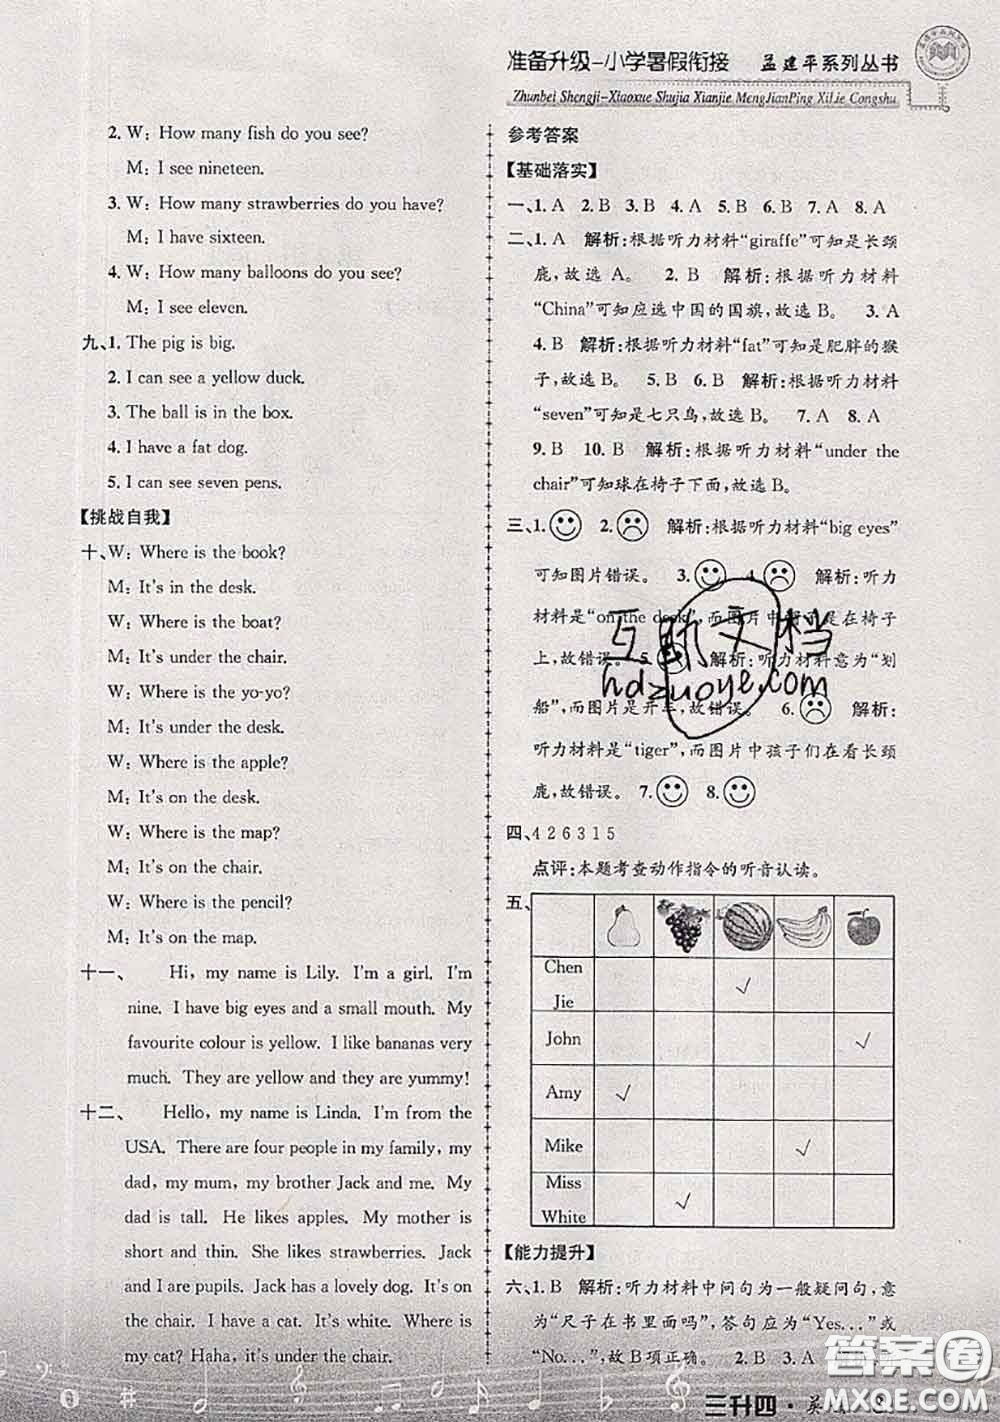 准备升级-小学暑假衔接 孟建平系列丛书
Zhunbei Shengji-Xiaoxue Shujia Xianjie MengJianPing XiLie Congshu
2. W: How many fish do you see?
M: I see nineteen.
3. W: How many strawberries do you have?
M: I have sixteen.
4. W: How many balloons do you see?
M: I see eleven.
九、1. The pig is big.
2. I can see a yellow duck.
3. The ball is in the box.
4. I have a fat dog.
5. I can see seven pens.
【挑战自我】
十、W: Where is the book?
M: It's in the desk.
W: Where is the boat?
M: It's under the chair.
W: Where is the yo-yo?
M: It's under the desk.
W: Where is the apple?
M: It's on the desk.
W: Where is the map?
M: It's on the chair.
W: Where is the pencil?
M: It's on the map.
十一、 Hi, my name is Lily. I'm a girl. I'm
nine. I have big eyes and a small mouth. My
favourite colour is yellow. I like bananas very
much. They are yellow and they are yummy!
十二、 Hello, my name is Linda. I'm from the
USA. There are four people in my family, my
dad, my mum, my brother Jack and me. My
dad is tall. He likes apples. My mother is
short and thin. She likes strawberries. Jack
and I are pupils. Jack has a lovely dog. It's
fat. I have a cat. It's white. Where is
my cat? Haha, it's under the chair.
参考答案
【基础落实】
一、1. A 2. B 3. B 4. A 5. B 6. B 7. A 8. A
二、1. A 解析:根据听力材料“giraffe”可知是长颈
鹿,故选 A。 2. B 解析:根据听力材料
“China”可知应选中国的国旗,故选 B。 3. A
4. B 解析:根据听力材料“fat”可知是肥胖的猴
子,故选 B。 5. B 6. B 解析:根据听力材料
“seven”可知是七只鸟,故选 B。 7. A 8. A
9. B 10. B 解析:根据听力材料“under the
chair”可知球在椅子下面,故选 B。
三、1. 2. 解析:根据听力材料“big eyes”
可知图片错误。 3. 4. 解析:听力
材料是“on the desk”,而图片中是在椅子
上,故错误。 5. 解析:听力材料意为“划
船”,而图片是开车,故错误。 6. 解析:
听力材料是“tiger”,而图片中孩子们在看长颈
鹿,故错误。 7. 8.
四、4 2 6 3 1 5
点评:本题考查动作指令的听音认读。
五、
Chen
Jie ✓
John ✓
Amy ✓
Mike ✓
Miss
White ✓
【能力提升】
六、1. B 解析:听力材料中问句为一般疑问句,意
为“尺子在书里面吗”,答句应为“Yes...”或
“No...”,故 B 项正确。 2. B 3. A
三升四·英
互助文档
hdzuoye.com
答案圈
MXQE.COM